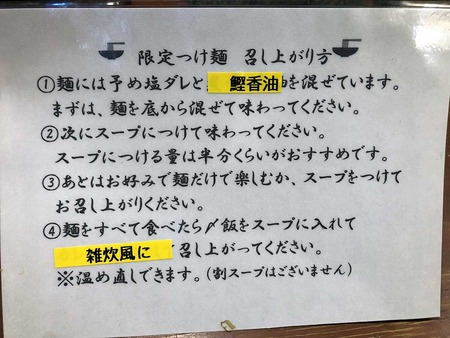 限定つけ麺 召し上がり方
①麺には予め塩ダレと鰹香油を混ぜています。
まずは、麺を底から混ぜて味わってください。
②次にスープにつけて味わってください。
スープにつける量は半分くらいがおすすめです。
③あとはお好みで麺だけで楽しむか、スープをつけて
お召し上がりください。
④麺をすべて食べたら〆飯をスープに入れて
雑炊風に召し上がってください。
※温め直しできます。(割スープはございません)